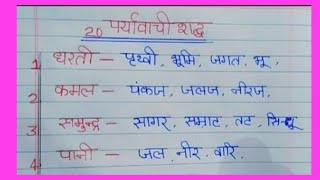 20 पर्यावाची शब्द
1 धरती – पृथ्वी, भूमि, जगत, भू.
2 कमल – पंकज, जलज, नीरज.
3 समुन्द्र – सागर, सम्राट, तट, सिन्धू
4 पानी – जल, नीर, वारि.